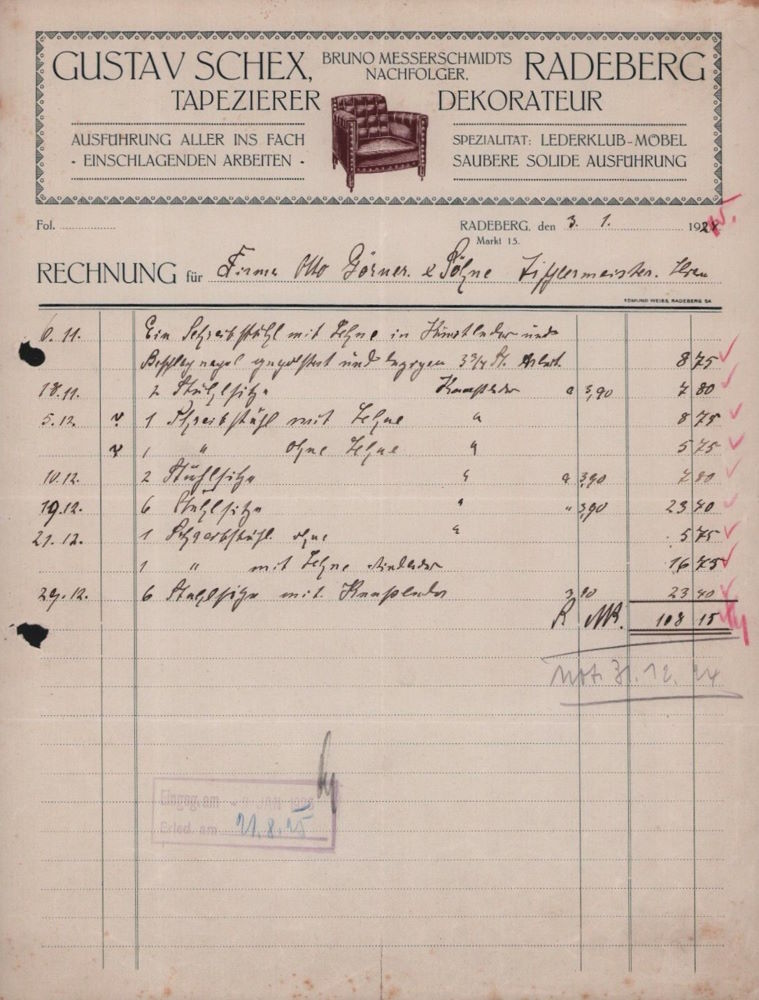 GUSTAV SCHEX, BRUNO MESSERSCHMIDTS NACHFOLGER, RADEBERG
TAPEZIERER DEKORATEUR
AUSFÜHRUNG ALLER INS FACH
· EINSCHLAGENDEN ARBEITEN ·
SPEZIALITÄT: LEDERKLUB-MÖBEL
SAUBERE SOLIDE AUSFÜHRUNG
Fol.
RADEBERG, den 3. 1. 192
Markt 15.
RECHNUNG für Firma Otto Görner & Söhne Tischlermeister.
EDMUND WEISS, RADEBERG SA
6. 11. Ein Schreibstuhl mit Lehne in Kunstleder und
Beschlagnagel gepolstert und bezogen 3 3/4 St. Arbeit 8 75
18. 11. 2 Stuhlsitze Kunstleder a 3,90 7 80
5. 12. 1 Schreibstuhl mit Lehne " 8 75
1 " ohne Lehne " 5 75
10. 12. 2 Stuhlsitze " a 3,90 7 80
19. 12. 6 Stuhlsitze " " 3,90 23 40
21. 12. 1 Schreibstuhl ohne " 5 75
1 " mit Lehne Rindleder 16 75
29. 12. 6 Stuhlsitze mit Kunstleder 3,90 23 40
R MK. 108 15
not. 31. 12. 24
Eingeg. am
Erled. am 21. 8. 25